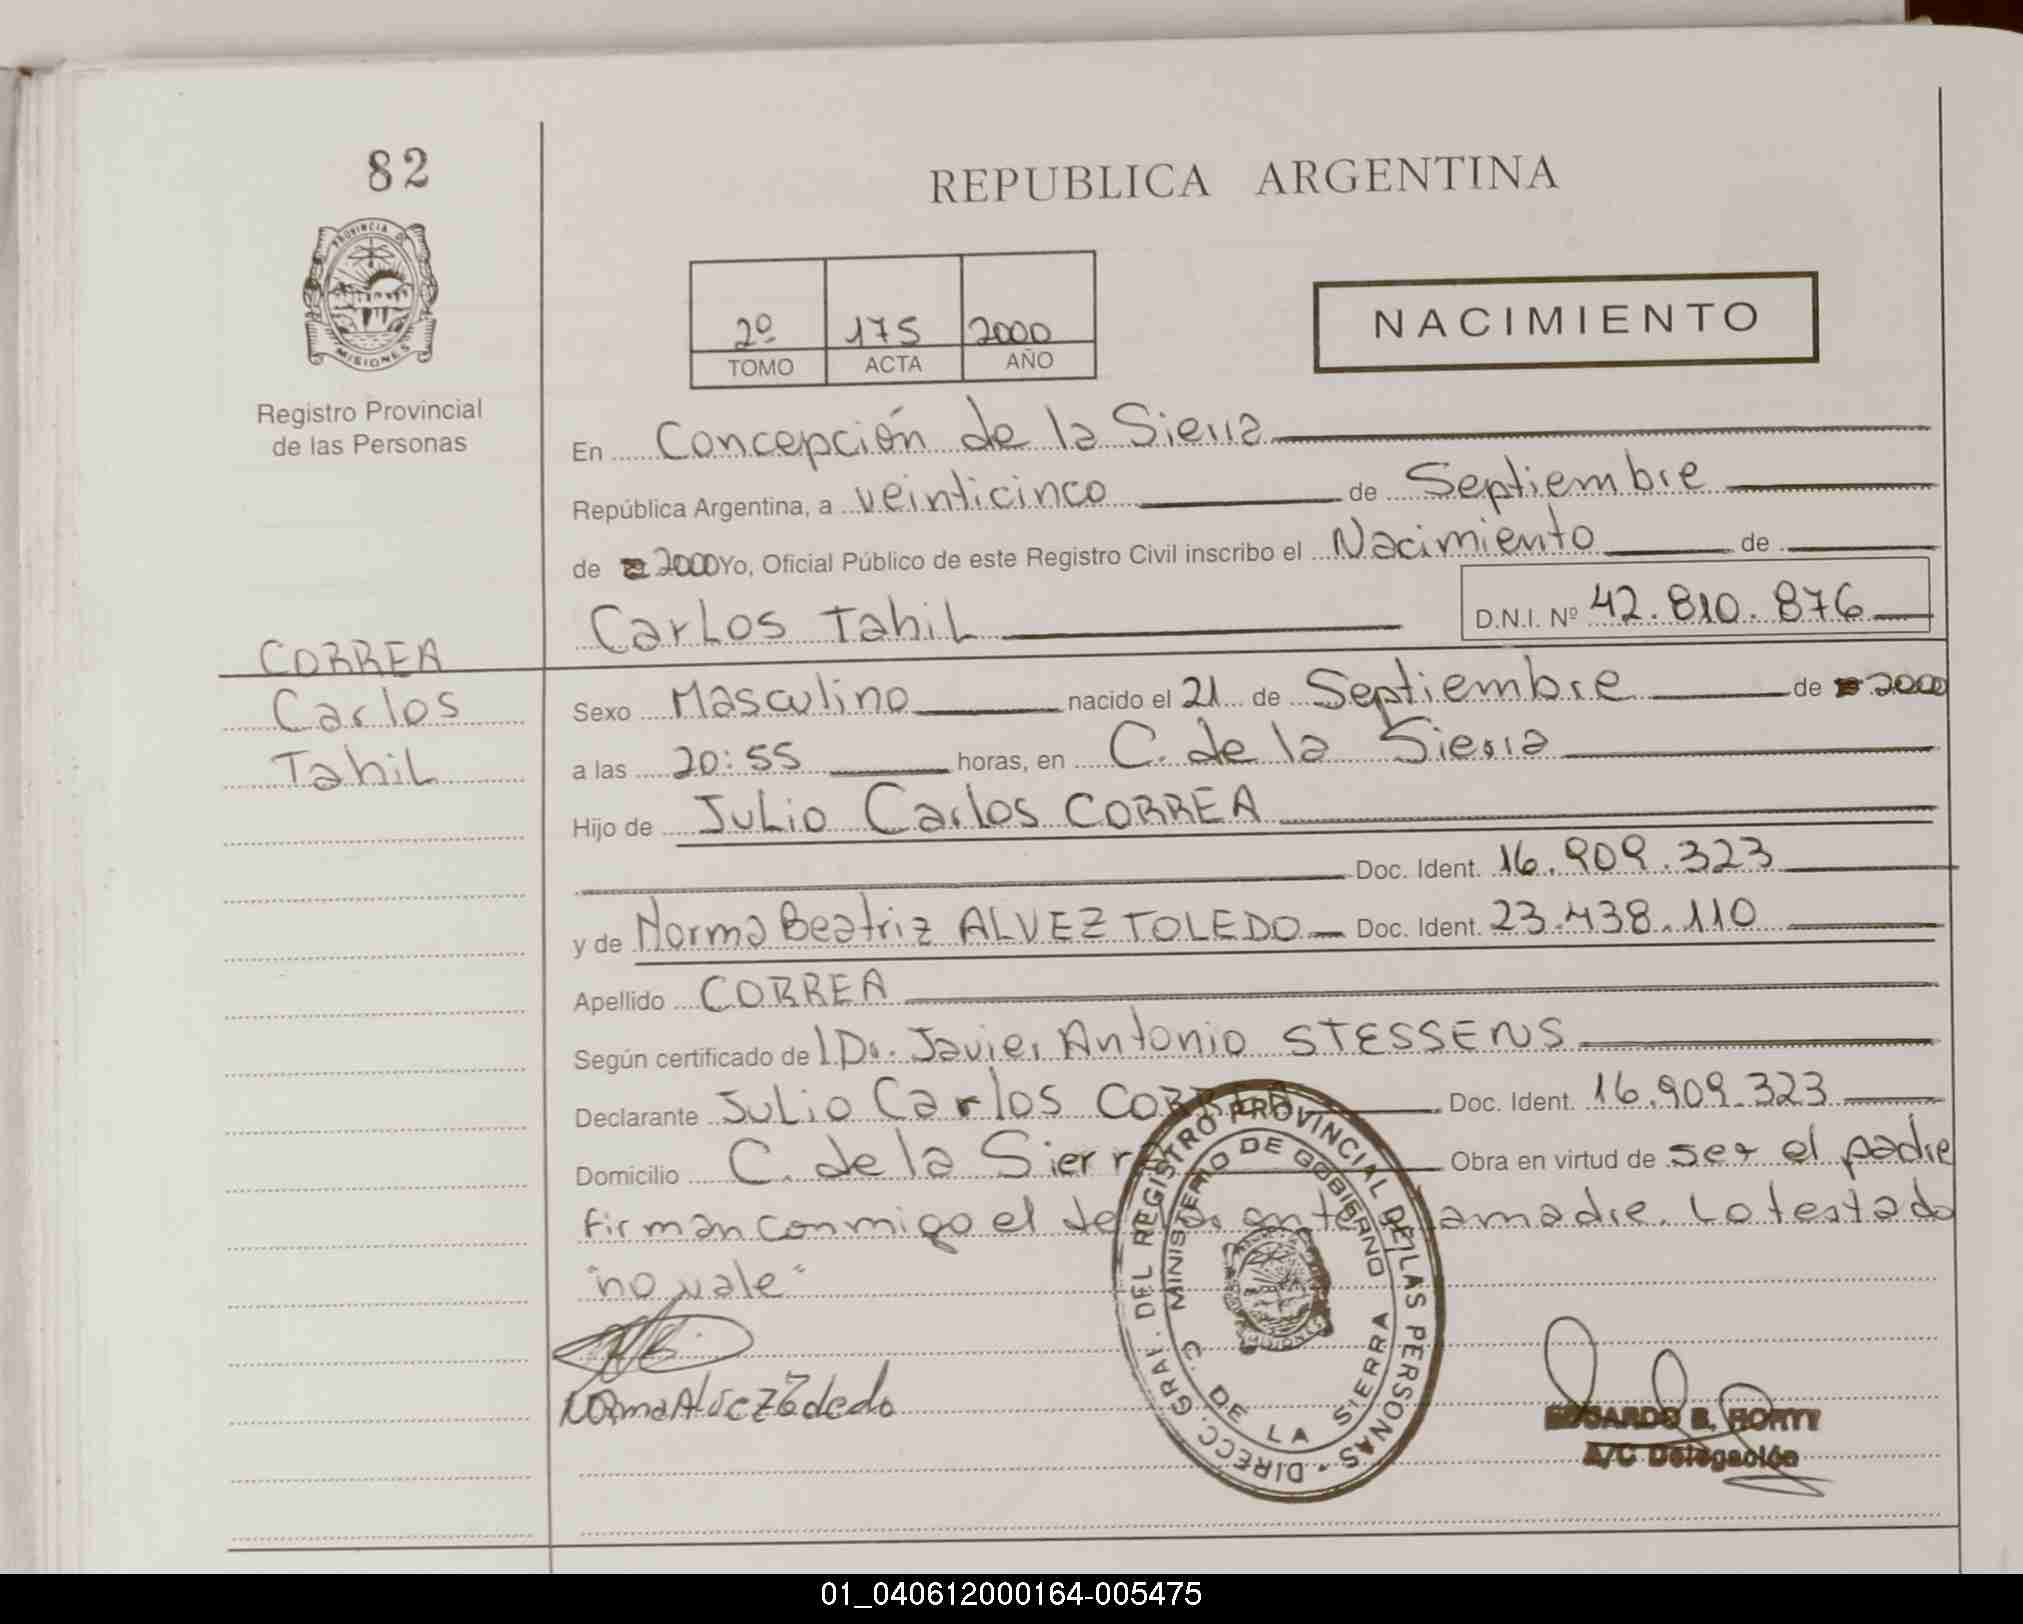 82
PROVINCIA DE
MISIONES
Registro Provincial
de las Personas
REPUBLICA ARGENTINA
2º 175 2000
TOMO ACTA AÑO
NACIMIENTO
En Concepción de la Sierra
República Argentina, a veinticinco de Septiembre
de 2000 Yo, Oficial Público de este Registro Civil inscribo el Nacimiento de
Carlos Tahil D.N.I. Nº 42.810.876
CORREA
Carlos
Tahil
Sexo Masculino nacido el 21 de Septiembre de 2000
a las 20:55 horas, en C. de la Sierra
Hijo de Julio Carlos CORREA
Doc. Ident. 16.909.323
y de Norma Beatriz ALVEZ TOLEDO Doc. Ident. 23.438.110
Apellido CORREA
Según certificado de l Dr. Javier Antonio STESSENS
Declarante Julio Carlos CORREA Doc. Ident. 16.909.323
Domicilio C. de la Sierra Obra en virtud de ser el padre
firman conmigo el la madre. Lo testado
"no vale"
Norma Alvez Toledo
DIRECC. GRAL. DEL REGISTRO PROVINCIAL DE LAS PERSONAS
MINISTERIO DE GOBIERNO
C. DE LA SIERRA
MISIONES
EDUARDO B.
A/C Delegación
01_040612000164-005475